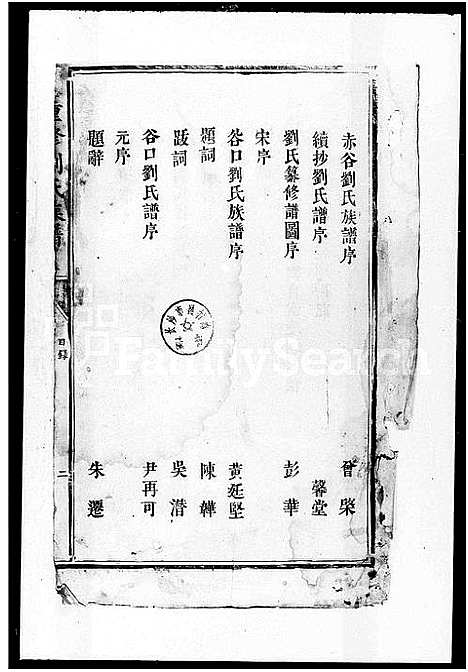 赤谷劉氏族譜序 曾棨
續抄劉氏譜序 馨堂
劉氏纂修譜圖序 彭華
宋序
谷口劉氏族譜序 黄廷堅
題詞 陳韡
跋詞 吳潛
谷口劉氏譜序 尹再可
元序
題辭 朱遷
重修劉氏族譜
目錄
二
FamilySearch